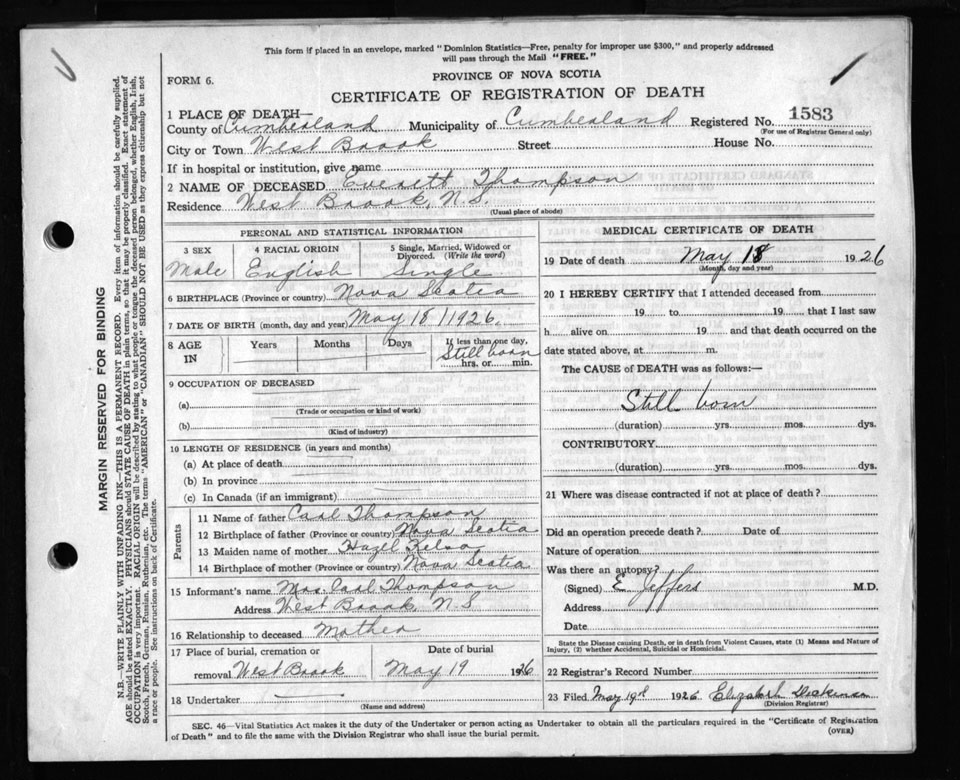 This form if placed in an envelope, marked "Dominion Statistics—Free, penalty for improper use $300," and properly addressed
will pass through the Mail "FREE."
FORM 6.
PROVINCE OF NOVA SCOTIA
CERTIFICATE OF REGISTRATION OF DEATH
1 PLACE OF DEATH—
County of Cumberland Municipality of Cumberland Registered No. 1583
(For use of Registrar General only)
City or Town West Brook Street House No.
If in hospital or institution, give name
2 NAME OF DECEASED Everett Thompson
Residence West Brook, N.S.
(Usual place of abode)
PERSONAL AND STATISTICAL INFORMATION
3 SEX 4 RACIAL ORIGIN 5 Single, Married, Widowed or
Divorced. (Write the word)
Male English Single
6 BIRTHPLACE (Province or country) Nova Scotia
7 DATE OF BIRTH (month, day and year) May 18 / 1926.
8 AGE IN Years Months Days If less than one day,
Still born
hrs. or min.
9 OCCUPATION OF DECEASED
(a)
(Trade or occupation or kind of work)
(b)
(Kind of industry)
10 LENGTH OF RESIDENCE (in years and months)
(a) At place of death
(b) In province
(c) In Canada (if an immigrant)
Parents
11 Name of father Carl Thompson
12 Birthplace of father (Province or country) Nova Scotia
13 Maiden name of mother Hazel Kelso
14 Birthplace of mother (Province or country) Nova Scotia
15 Informant's name Mrs Carl Thompson
Address West Brook, N.S
16 Relationship to deceased Mother
17 Place of burial, cremation or Date of burial
removal West Brook May 19 1926
18 Undertaker
(Name and address)
MEDICAL CERTIFICATE OF DEATH
19 Date of death May 18 1926
(Month, day and year)
20 I HEREBY CERTIFY that I attended deceased from
19 to 19 that I last saw
h alive on 19 and that death occurred on the
date stated above, at m.
The CAUSE of DEATH was as follows:—
Still born
(duration) yrs. mos. dys.
CONTRIBUTORY
(duration) yrs. mos. dys.
21 Where was disease contracted if not at place of death?
Did an operation precede death? Date of
Nature of operation
Was there an autopsy?
(Signed) E Jeffers M.D.
Address
Date
State the Disease causing Death, or in death from Violent Causes, state (1) Means and Nature of
Injury, (2) whether Accidental, Suicidal or Homicidal.
22 Registrar's Record Number
23 Filed May 19th 1926 Elizabeth
(Division Registrar)
SEC. 46—Vital Statistics Act makes it the duty of the Undertaker or person acting as Undertaker to obtain all the particulars required in the "Certificate of Registration
of Death" and to file the same with the Division Registrar who shall issue the burial permit.
(OVER)
MARGIN RESERVED FOR BINDING
N.B.—WRITE PLAINLY WITH UNFADING INK—THIS IS A PERMANENT RECORD. Every item of information should be carefully supplied.
AGE should be stated EXACTLY. PHYSICIANS should STATE CAUSE OF DEATH in plain terms, so that it may be properly classified. Exact statement of
OCCUPATION is very important. RACIAL ORIGIN will be described by stating to what people or tongue the deceased person belonged, whether English, Irish,
Scotch, French, German, Russian, Ruthenian, etc. The terms "AMERICAN" or "CANADIAN" SHOULD NOT BE USED as they express citizenship but not
a race or people. See instructions on back of Certificate.